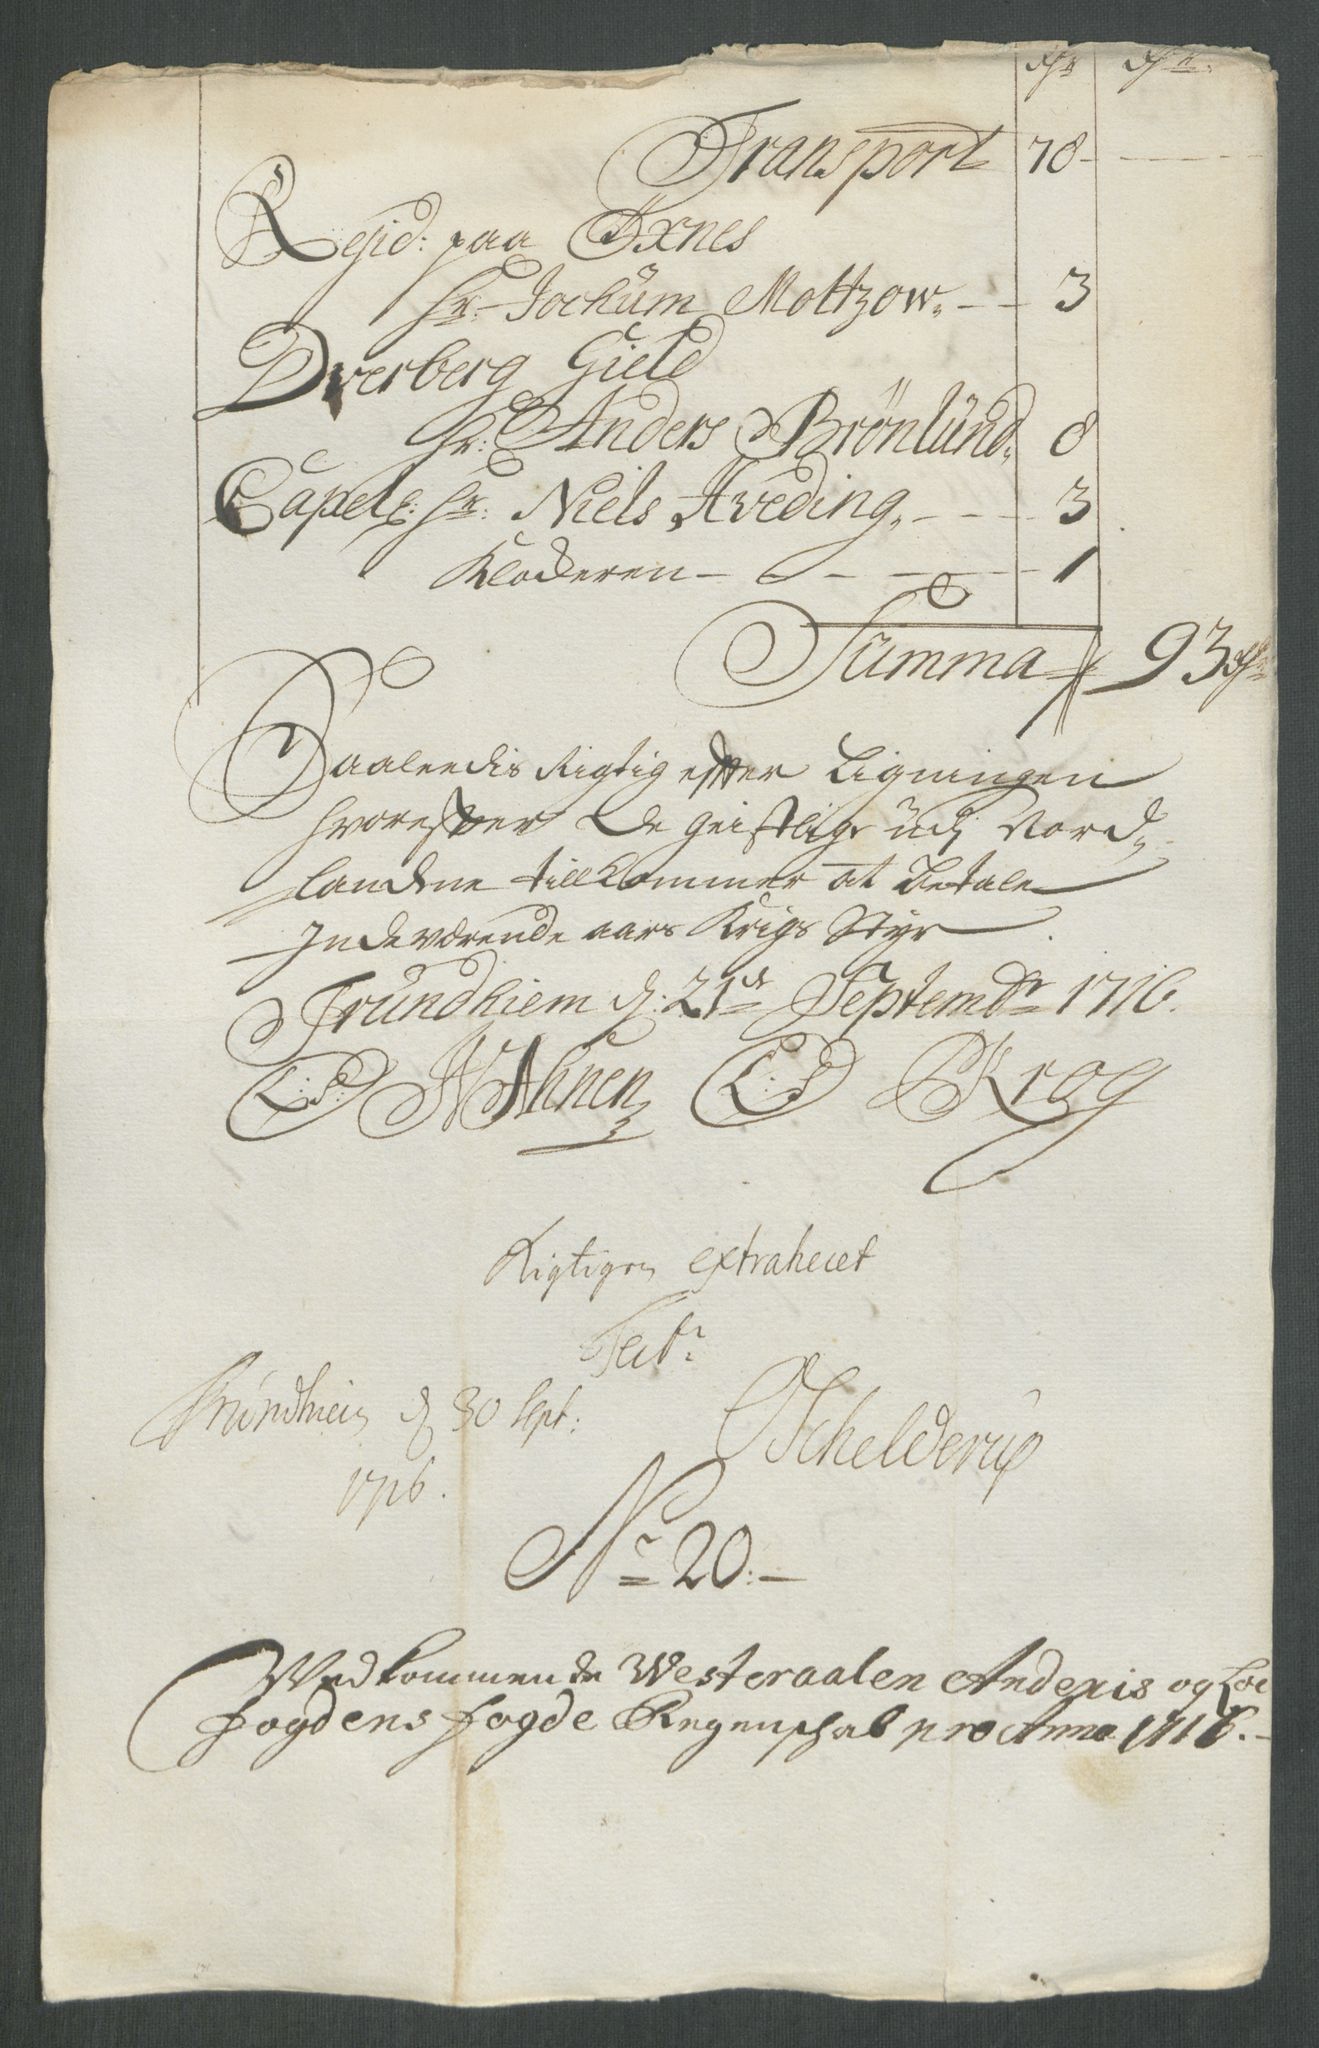 Rdr Rdr
Transport 78
Resid: paa Öxnes
hr. Jochum Mottzow. 3
Dverberg Gield
hr: Anders Brönlund. 8
Capel: hr: Niels Hveding. 3
Klockeren 1
Summa 93 Rdr
Saaleedis Rigtig efter Ligningen
hvorefter De geistlige udj Nord
landene tillkommer at betale
Indeværende aars Krigs Styr
Trundhiem d: 21de Septembr 1716.
L:S: Ahnen L:S P Krog
Rigtigen extraheret
Test:
Trundhiem d 30 Sept:
Schelderup
1716.
No 20:
Vedkommende Westeraalen Andenis og Lof
fogdens fogde Regenskab pro Anno 1716.